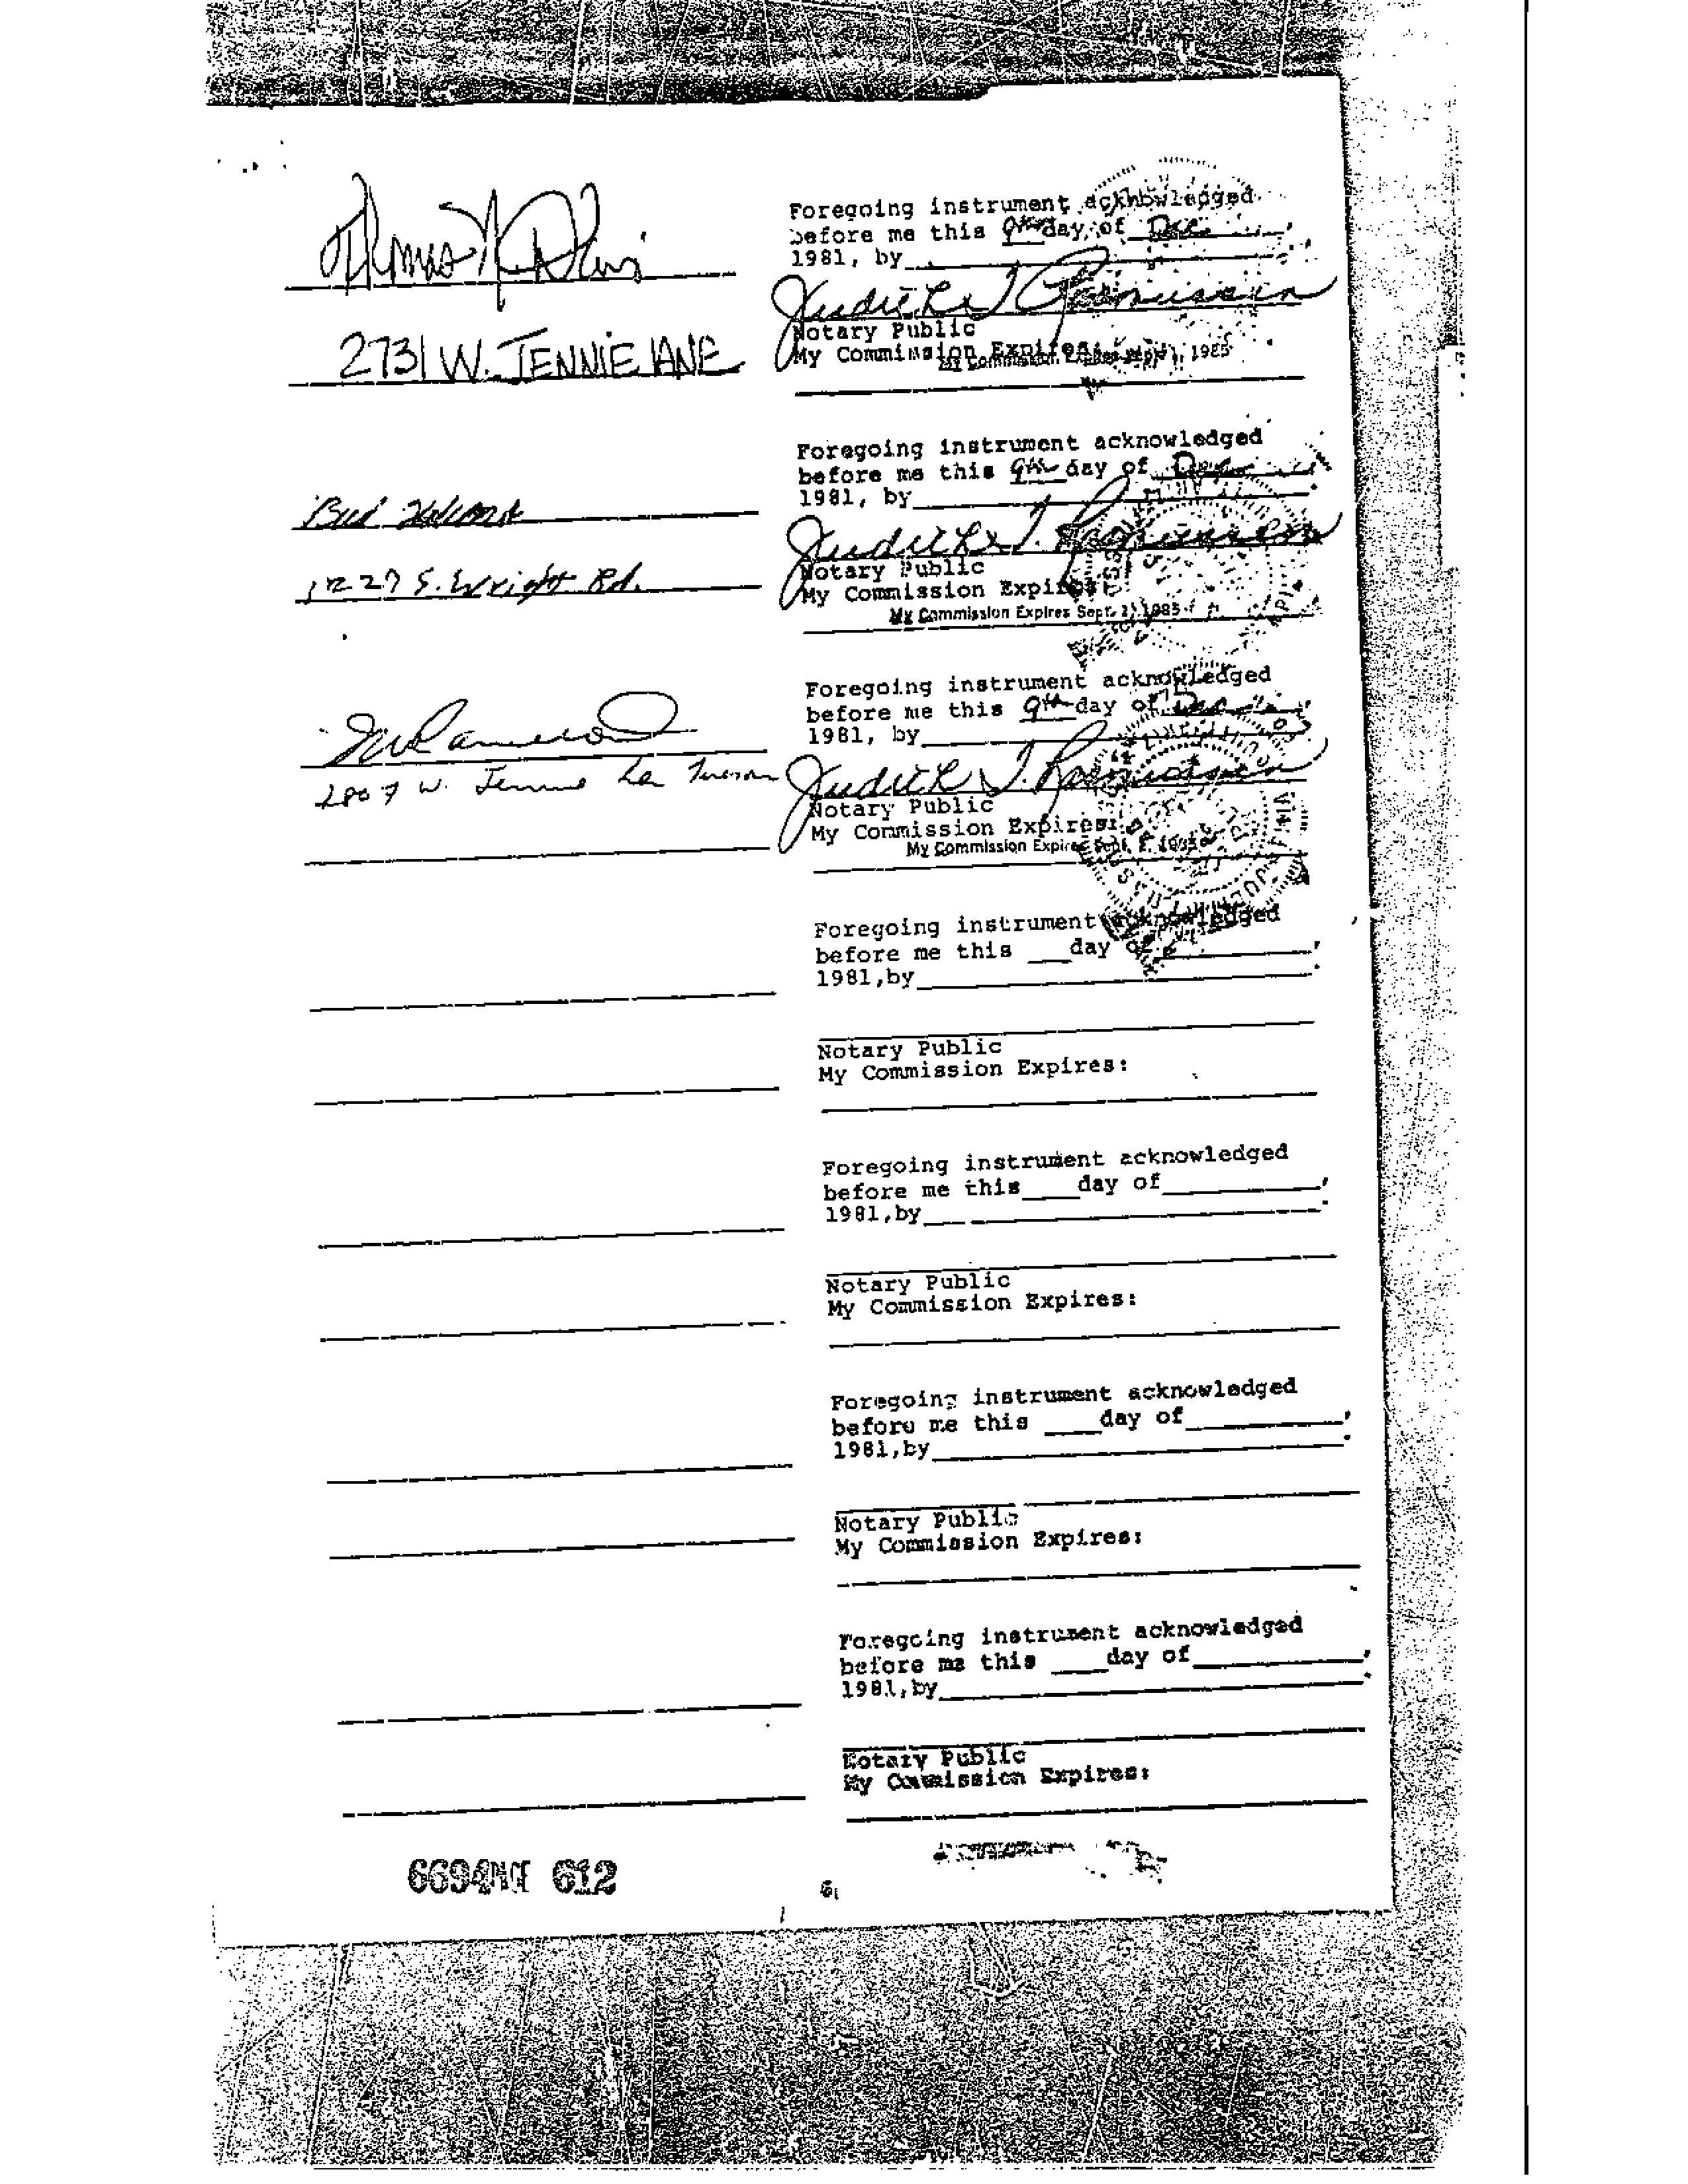 Foregoing instrument acknowledged
before me this 9th day of Dec.
1981, by
Thomas
Judith J. Rasmussen
Notary Public
2731 W. JENNIE LANE
My Commission Expires:
My Commission Expires Sept. 1, 1985
Foregoing instrument acknowledged
before me this 9th day of Dec.
1981, by
Bud
Judith J. Rasmussen
Notary Public
1227 S. Wright Rd.
My Commission Expires:
My Commission Expires Sept. 1, 1985
Foregoing instrument acknowledged
before me this 9th day of Dec.
1981, by
2807 W. Jennie Ln Tucson
Judith J. Rasmussen
Notary Public
My Commission Expires:
My Commission Expires Sept. 1, 1985
Foregoing instrument acknowledged
before me this ___day of
1981,by
Notary Public
My Commission Expires:
Foregoing instrument acknowledged
before me this____day of__________,
1981,by______________.
Notary Public
My Commission Expires:
Foregoing instrument acknowledged
before me this ____day of__________,
1981,by______________.
Notary Public
My Commission Expires:
Foregoing instrument acknowledged
before me this ____day of__________,
1981,by______________.
Notary Public
My Commission Expires:
6694 PAGE 612